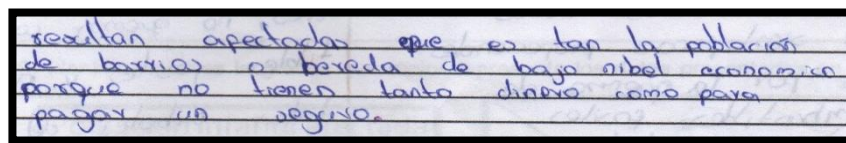 resultan apectadas que es tan la poblacion
de barrios o bereda de bajo nibel economico
porque no tienen tanto dinero como para
pagar un seguro.